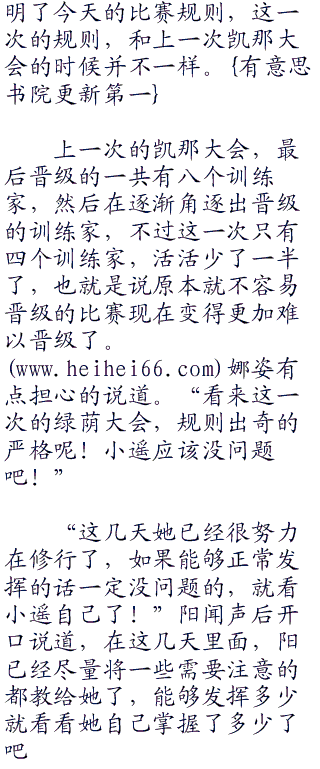 明了今天的比赛规则，这一
次的规则，和上一次凯那大
会的时候并不一样。{有意思
书院更新第一}
上一次的凯那大会，最
后晋级的一共有八个训练
家，然后在逐渐角逐出晋级
的训练家，不过这一次只有
四个训练家，活活少了一半
了，也就是说原本就不容易
晋级的比赛现在变得更加难
以晋级了。
(www.heihei66.com)娜姿有
点担心的说道。“看来这一
次的绿荫大会，规则出奇的
严格呢！小遥应该没问题
吧！”
“这几天她已经很努力
在修行了，如果能够正常发
挥的话一定没问题的，就看
小遥自己了！”阳闻声后开
口说道，在这几天里面，阳
已经尽量将一些需要注意的
都教给她了，能够发挥多少
就看看她自己掌握了多少了
吧